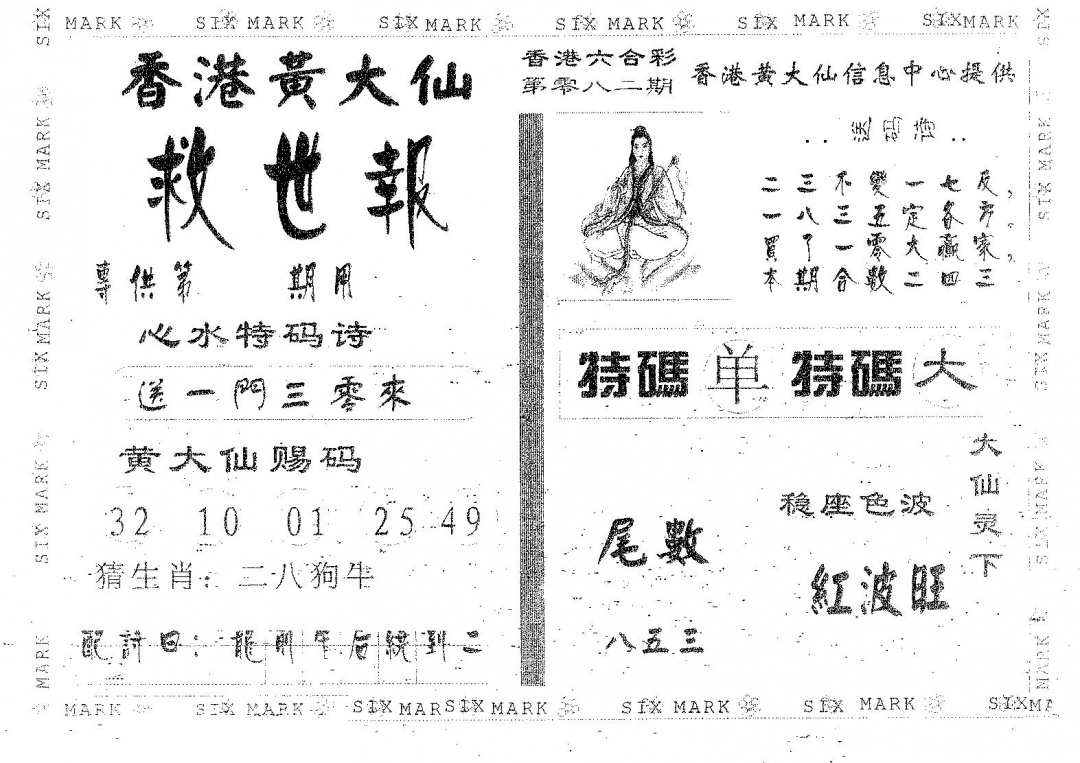 SIX MARK SIX MARK SIX MARK SIX MARK SIX MARK SIXMARK
香港黃大仙
救世報
專供第 期用
心水特码诗
送一門三零來
黄大仙赐码
32 10 01 25 49
猜生肖：二八狗牛
配詩曰：龍前午后繞到二
香港六合彩
第零八二期
香港黄大仙信息中心提供
..送码诗..
二三不變一七反，
一八三五定各方。
買了一零大贏家，
本期合數二四三
特碼 单 特碼 大
尾數
八五三
稳座色波
紅波旺
大仙灵下
MARK SIX MARK SIX MARSIX MARK SIX MARK SIX MARK SIXMA